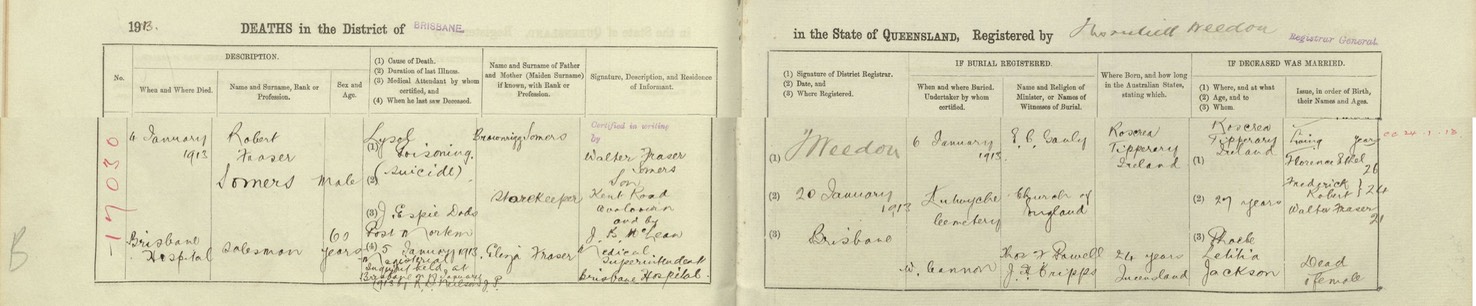 1913.
DEATHS in the District of BRISBANE.
No.
DESCRIPTION.
When and Where Died.
Name and Surname, Rank or
Profession.
Sex and
Age.
(1) Cause of Death.
(2) Duration of last Illness.
(3) Medical Attendant by whom
certified, and
(4) When he last saw Deceased.
Name and Surname of Father
and Mother (Maiden Surname)
if known, with Rank or
Profession.
Signature, Description, and Residence
of Informant.
B
17030
4 January
1913
Brisbane
Hospital
Robert
Fraser
Somers
Salesman
Male
60
years
Lysol
(1) Poisoning
(suicide)
(2)
(3) J Espie Dods
Post Mortem
(4) 5 January 1913
Magisterial
Inquiry held at
Brisbane
Brownrigg Somers
Storekeeper
Eliza Fraser
Certified in writing
by
Walter Fraser
Somers
Son
Kent Road
Wooloowin
and by
J. B. McLean
Medical
Superintendent
Brisbane Hospital.
in the State of QUEENSLAND, Registered by Thornhill Weedon
Registrar General.
(1) Signature of District Registrar.
(2) Date, and
(3) Where Registered.
IF BURIAL REGISTERED.
When and where Buried.
Undertaker by whom
certified.
Name and Religion of
Minister, or Names of
Witnesses of Burial.
Where Born, and how long
in the Australian States,
stating which.
IF DECEASED WAS MARRIED.
(1) Where, and at what
(2) Age, and to
(3) Whom.
Issue, in order of Birth,
their Names and Ages.
(1) Weedon
(2) 20 January
1913
(3) Brisbane
6 January
1913
Lutwyche
Cemetery
W. Cannon
E. C. Ganly
Church of
England
Thos F Powell
J. F. Cripps
Roscrea
Tipperary
Ireland
24 years
Queensland
Roscrea
Tipperary
Ireland
(1)
(2) 27 years
(3) Phoebe
Letitia
Jackson
Living years
Florence Ethel
26
Frederick
Robert } 24
Walter Fraser
21
Dead
1 Female